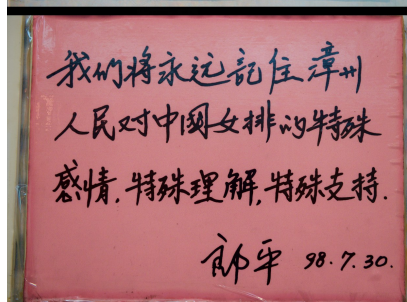 我们将永远記住漳州
人民对中國女排的特殊
感情，特殊理解，特殊支持.
郎平 98.7.30.